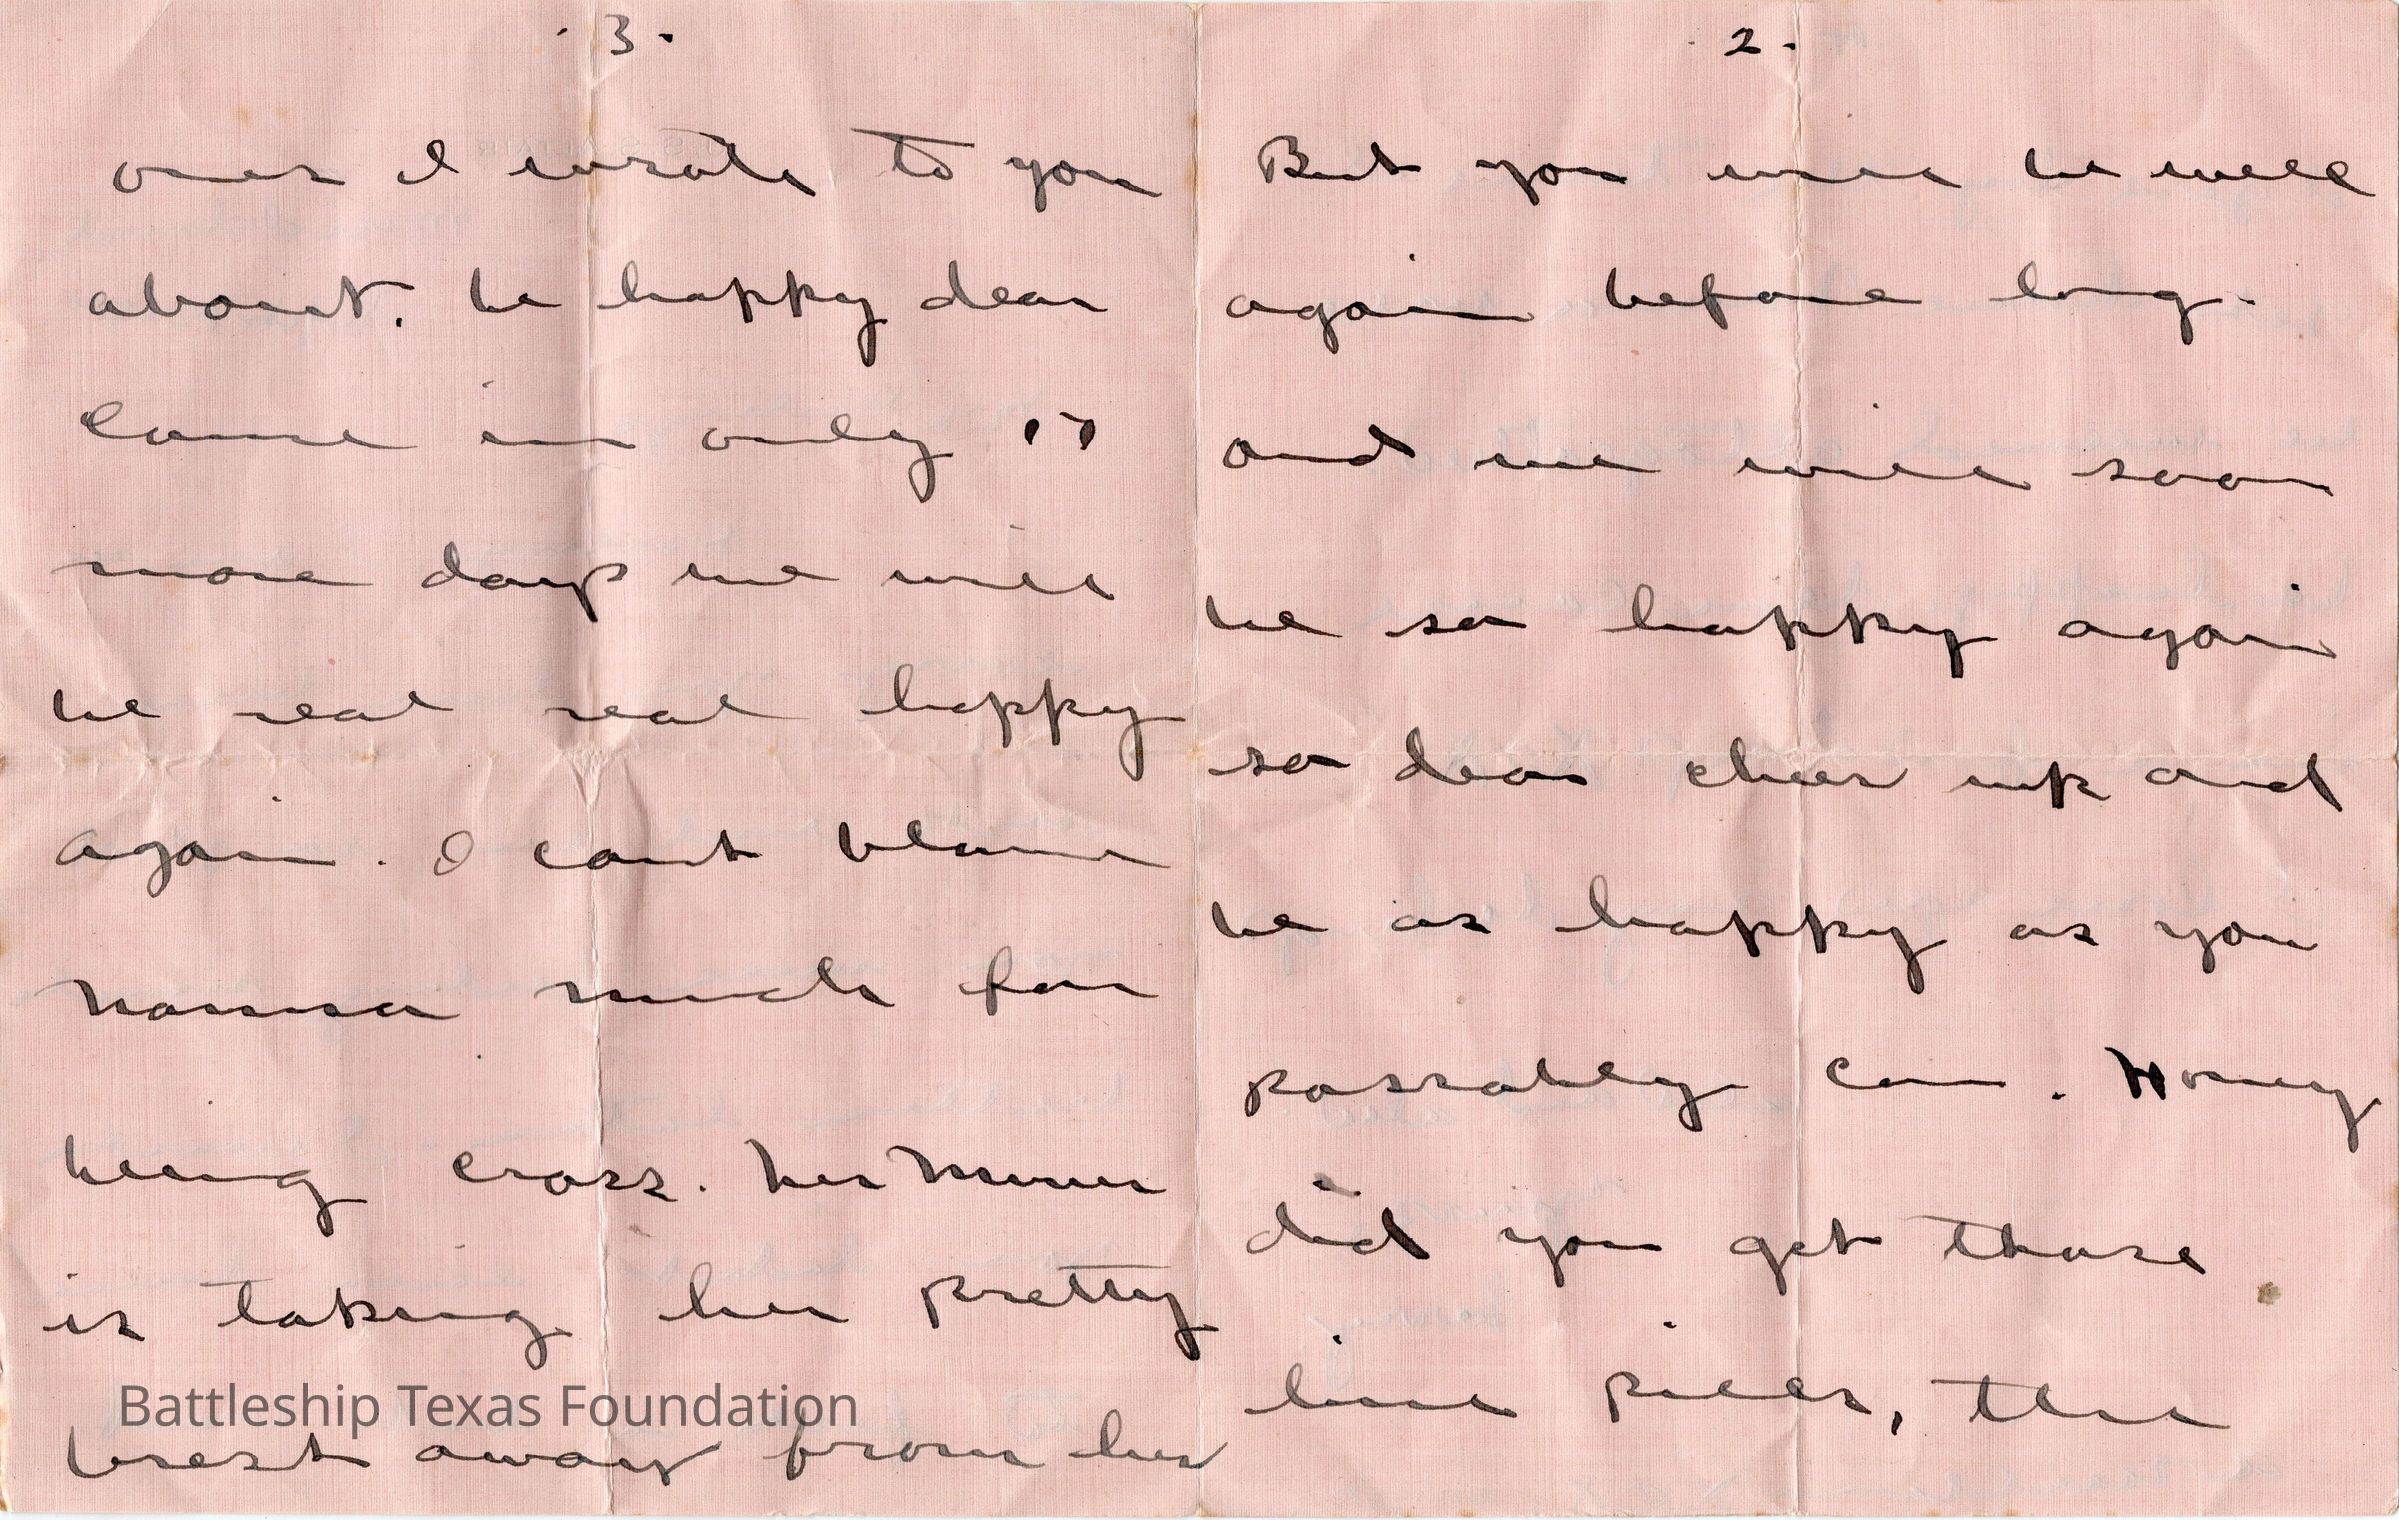 . 2 .
But you will be well
again before long.
and we will soon
be so happy again
so dear cheer up and
be as happy as you
possably can. Honey
did you get those
pills, the
. 3 .
ones I wrote to you
about. be happy dear
Cause in only 17
more days we will
be real real happy
again. I cant blame
much for
being cross. her
is taking her pretty
brest away from her
Battleship Texas Foundation